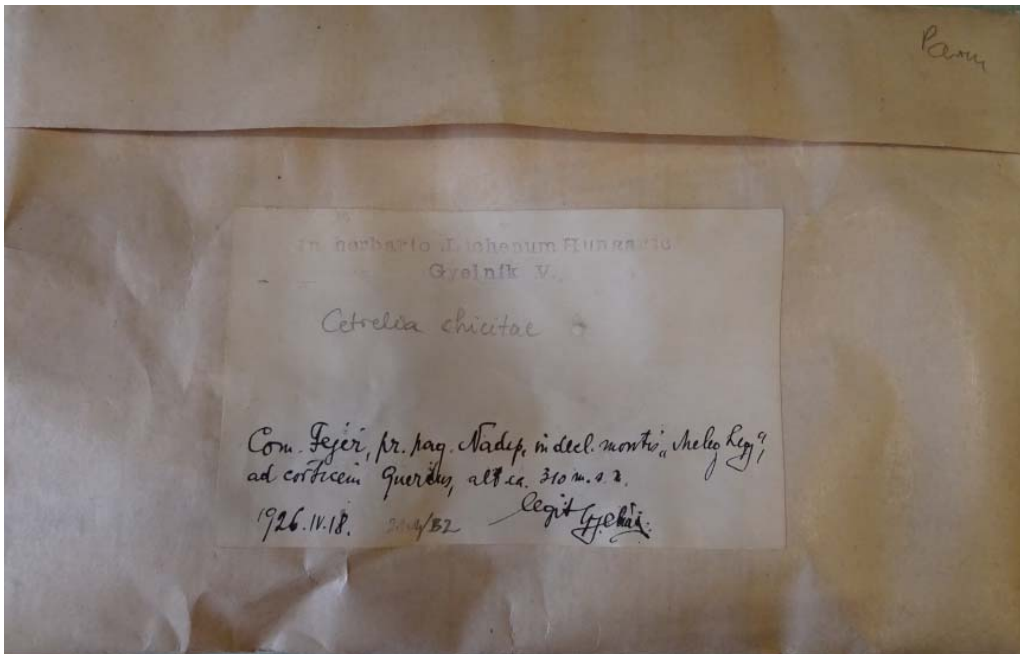 In herbario Lichenum Hungariae
Gyelnik V.
Cetrelia chicitae
Com. Fejér, pr. pag. Nadap, in decl. montis „Meleg hegy",
ad corticem Quercus, alt. ca. 310 m. s. m.
1926.IV.18. legit Gyelnik